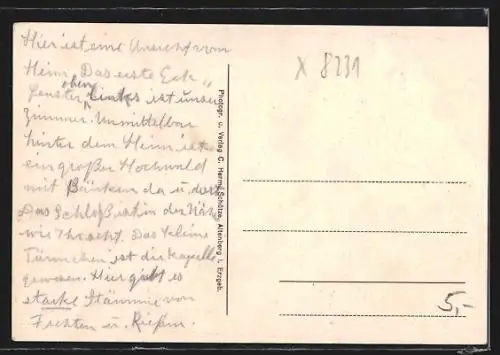 Hier ist eine Ansicht vom
Heim. Das erste Eck„
fenster oben links ist unser
Zimmer. Unmittelbar
hinter dem Heim ist
ein großer Hochwald
mit Bänken da u. dort.
Das Schloß ist in der Nähe
wie Ihr seht. Das kleine
Türmchen ist die Kapelle
gewesen. Hier gibt es
starke Stämme von
Fichten u. Kiefern.
Photogr. u. Verlag C. Herm. Schütze, Altenberg i. Erzgeb.
X 8231
5,-